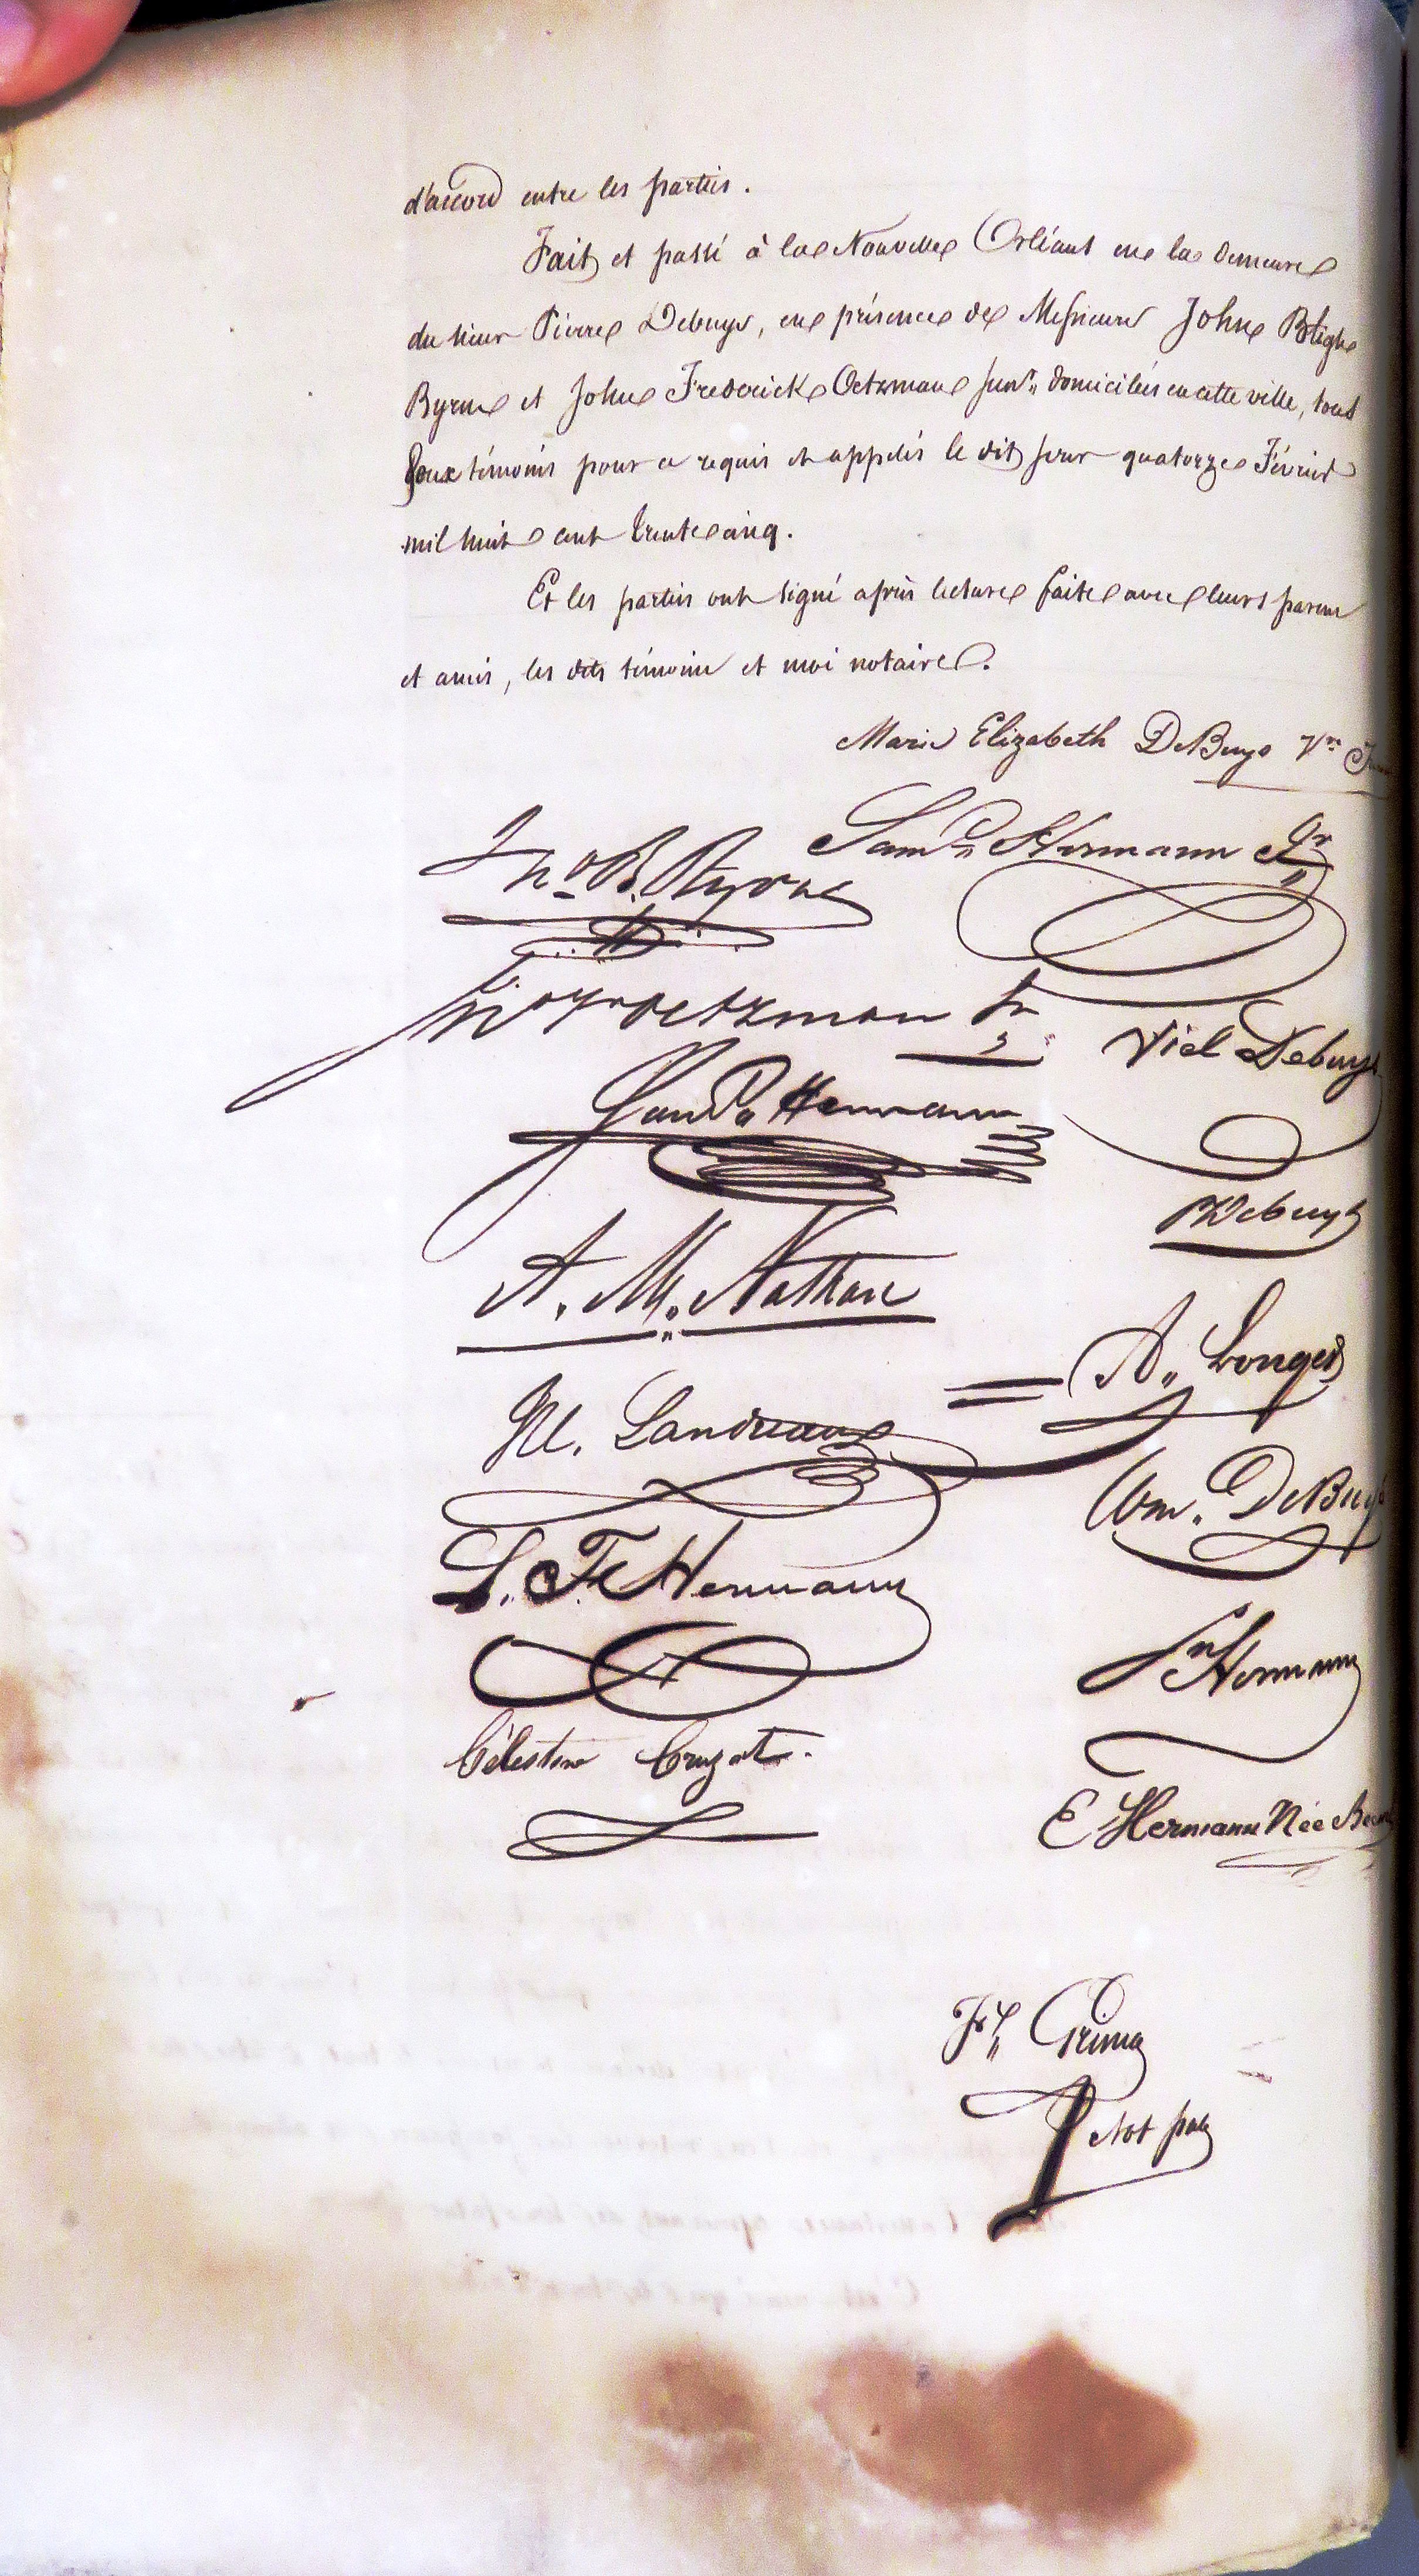 d'accord entre les parties.
Fait et passé à la Nouvelle Orléans en la demeure
du sieur Pierre Debuys, en présence de Messieurs John Bligh
Byrne et John Frederick Oetzman junr. domiciliés en cette ville, tous
deux témoins pour ce requis et appelés le dit jour quatorze Février
mil huit cent trente cinq.
Et les parties ont signé après lecture faite avec leurs parens
et amis, les dits témoins et moi notaire.
Marie Elizabeth DeBuys Vve
Jno B. Byrne
Saml Hermann Jr
Jno F Oetzman Jr
Viel Debuys
Saml Hermann
P Debuys
A. M. Nathan
A. Longer
Hte. Landreaux
Wm. DeBuys
L. F. Hermann
Fn Hermann
Célestine Cruzat.
E Hermann Née
Fx Grima
Not pub